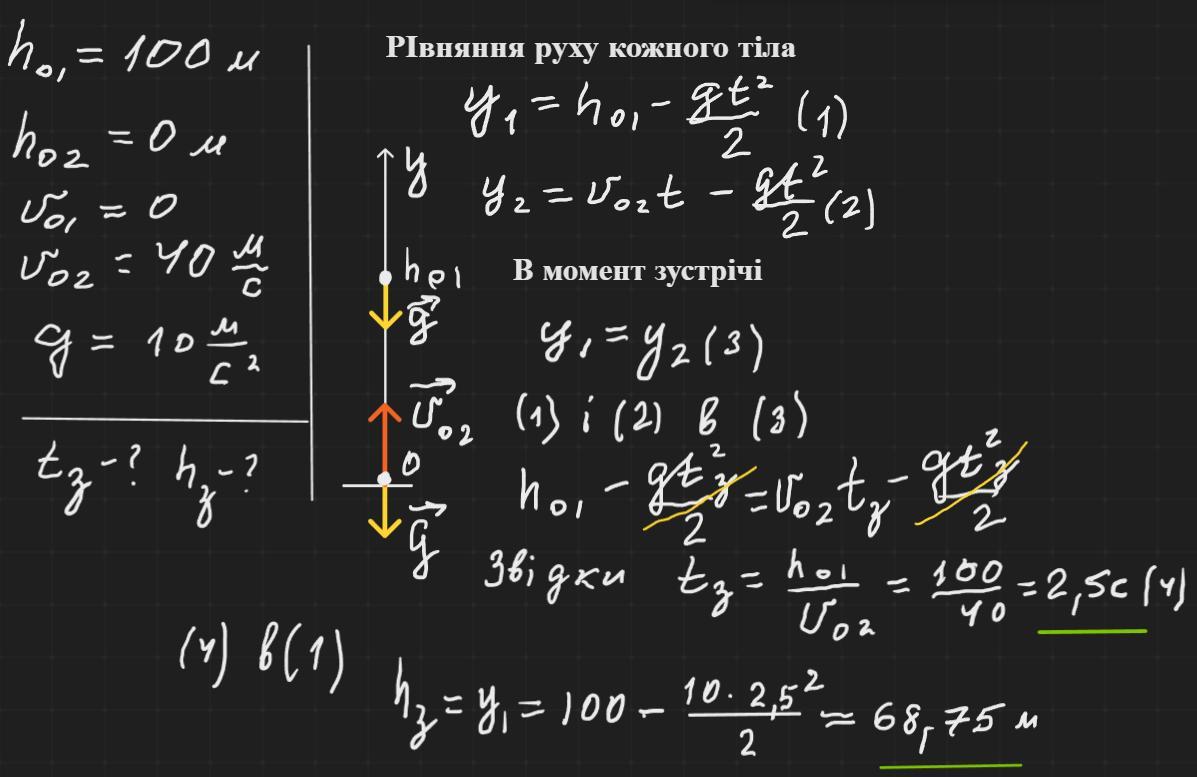 h₀₁ = 100 м
h₀₂ = 0 м
v₀₁ = 0
v₀₂ = 40 м/с
g = 10 м/с²
t_z - ? h_z - ?
y
h₀₁
g
v₀₂
0
g
РІвняння руху кожного тіла
y₁ = h₀₁ - gt²/2 (1)
y₂ = v₀₂t - gt²/2 (2)
В момент зустрічі
y₁ = y₂ (3)
(1) і (2) в (3)
h₀₁ - gt_z²/2 = v₀₂t_z - gt_z²/2
Звідки t_z = h₀₁/v₀₂ = 100/40 = 2,5с (4)
(4) в (1)
h_z = y₁ = 100 - 10·2,5²/2 = 68,75 м